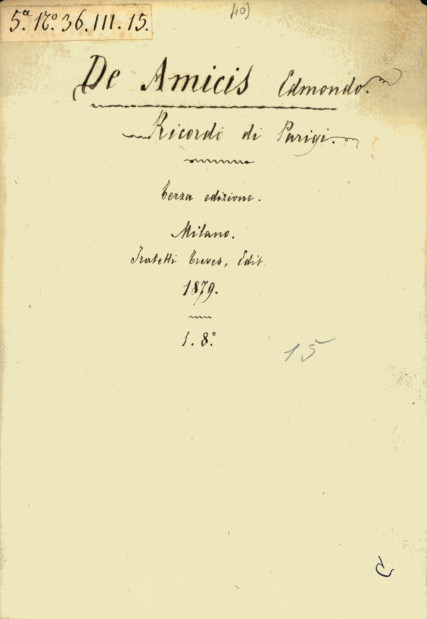 5.ª N.º 36. III. 15.
40)
De Amicis Edmondo.
Ricordi di Parigi.
Terza edizione.
Milano.
Fratelli Treves, Edit.
1879.
1. 8.º
15